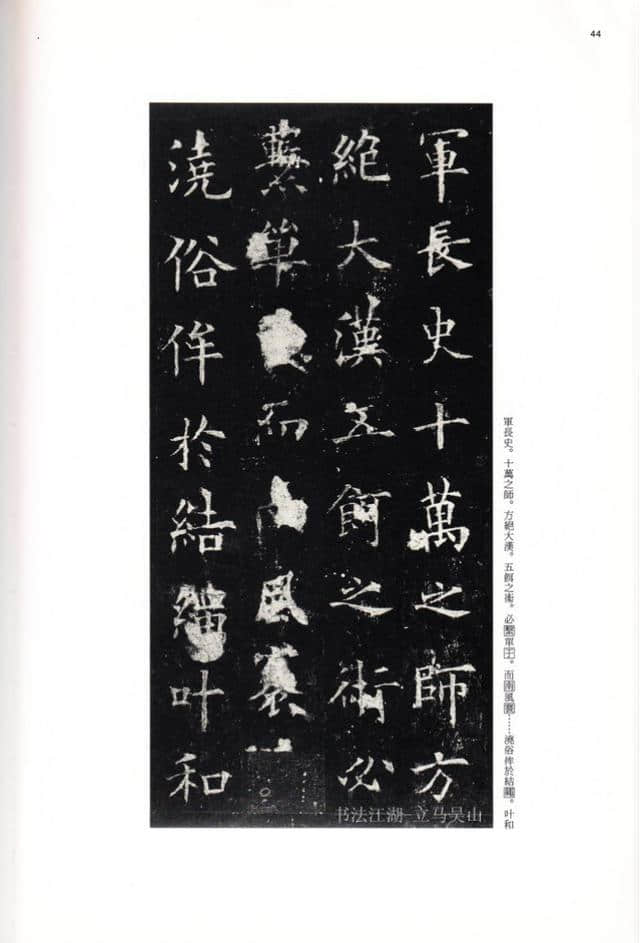 44
軍長史十萬之師方
絶大漢五餌之術必
單而風
澆俗侔於結繩叶和
軍長史。十萬之師。方絕大漢。五餌之術。必繫單于。而南風……澆俗侔於結繩。叶和
书法江湖-立马吴山